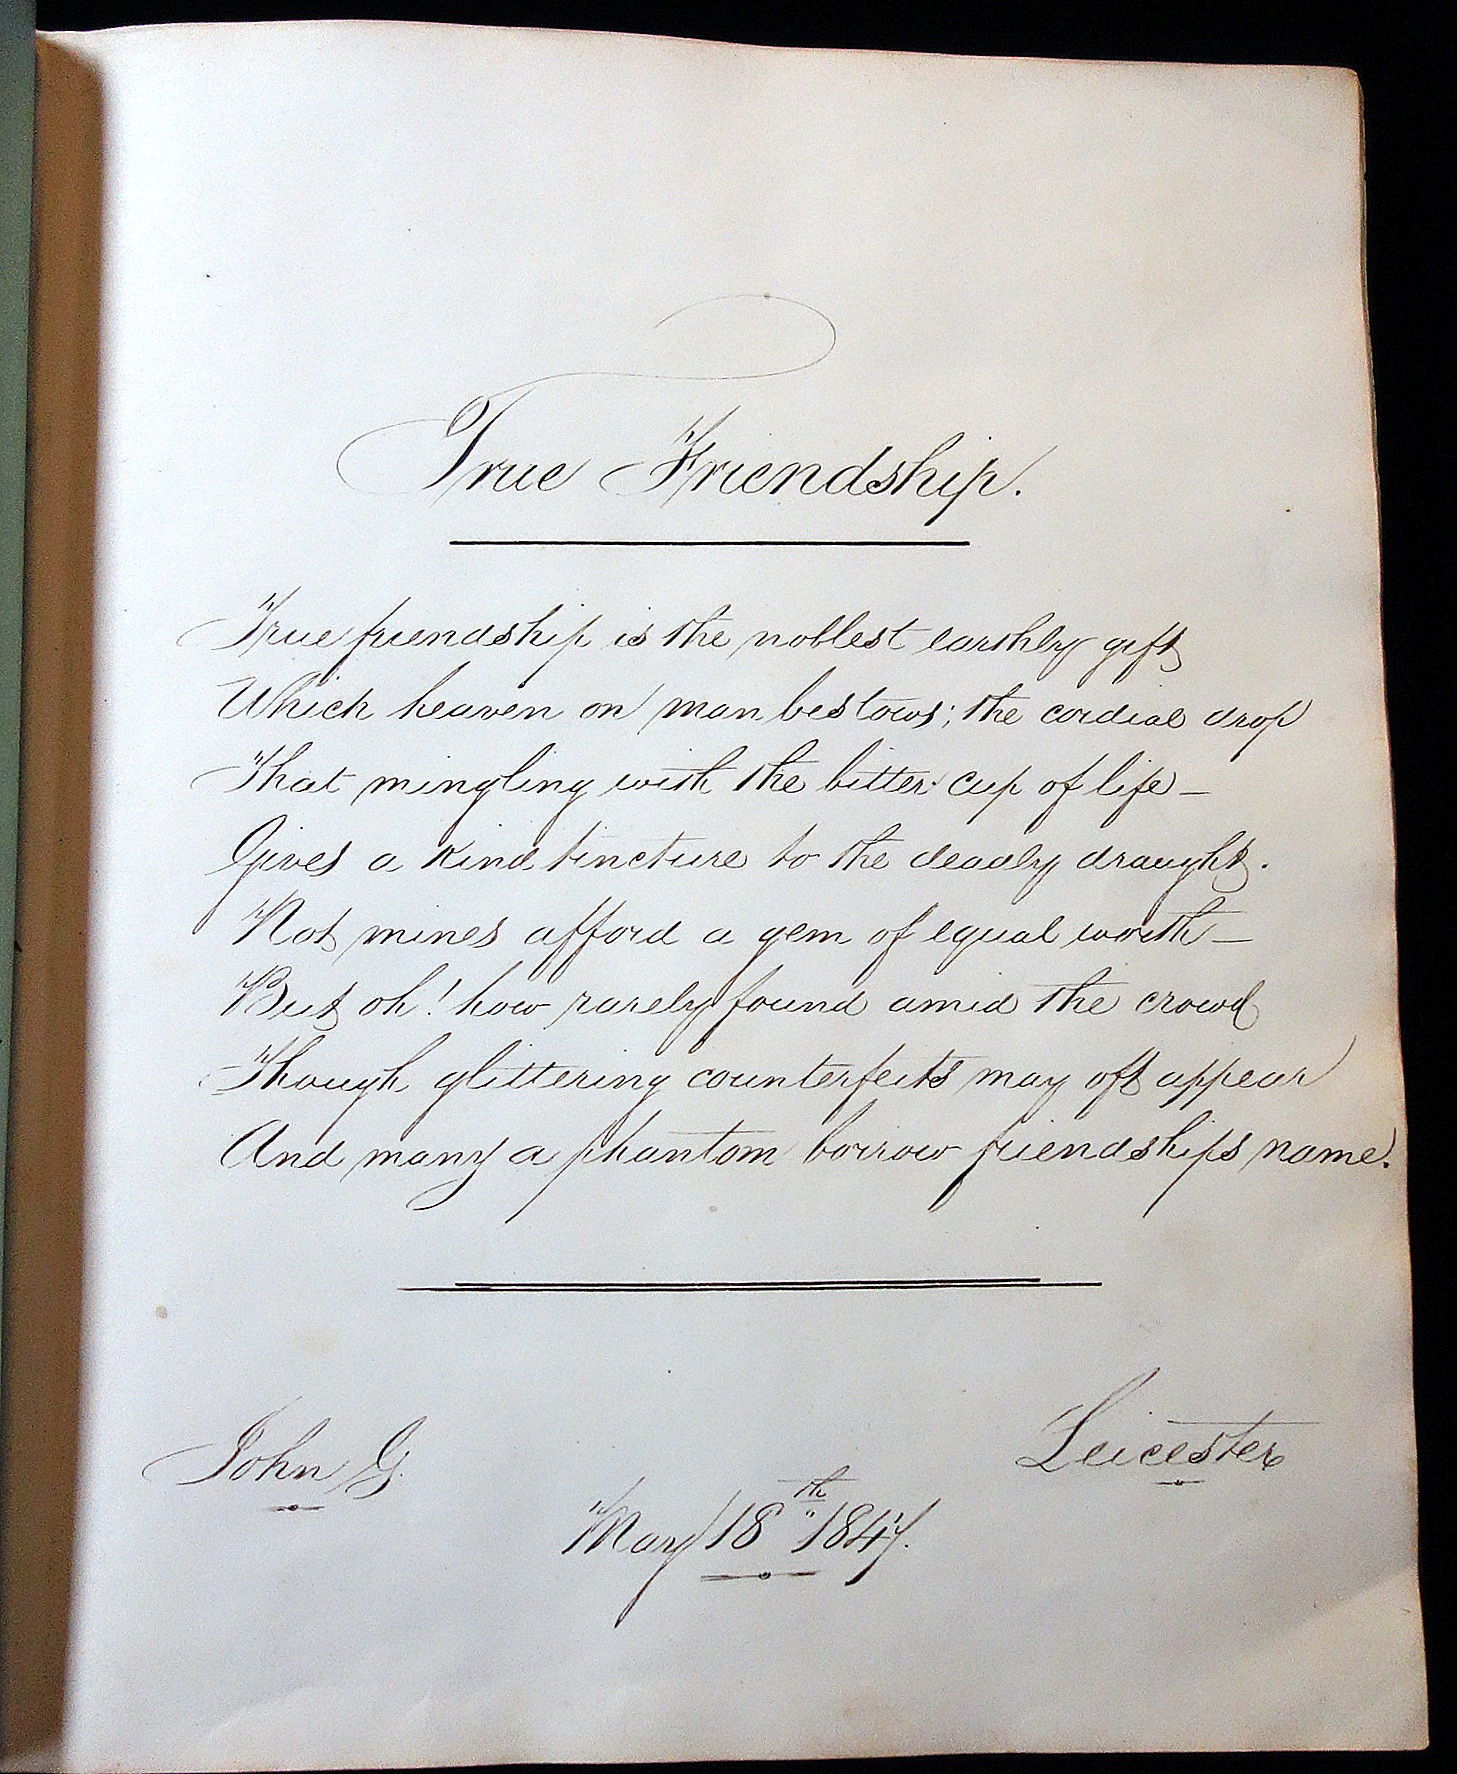 True Friendship.
True friendship is the noblest earthly gift
Which heaven on man bestows; the cordial drop
That mingling with the bitter cup of life –
Gives a kind tincture to the deadly draught.
Not mines afford a gem of equal worth –
But oh! how rarely found amid the crowd
Though glittering counterfeits may oft appear
And many a phantom borrow friendships name.
John G.
Leicester
May 18th 1847.